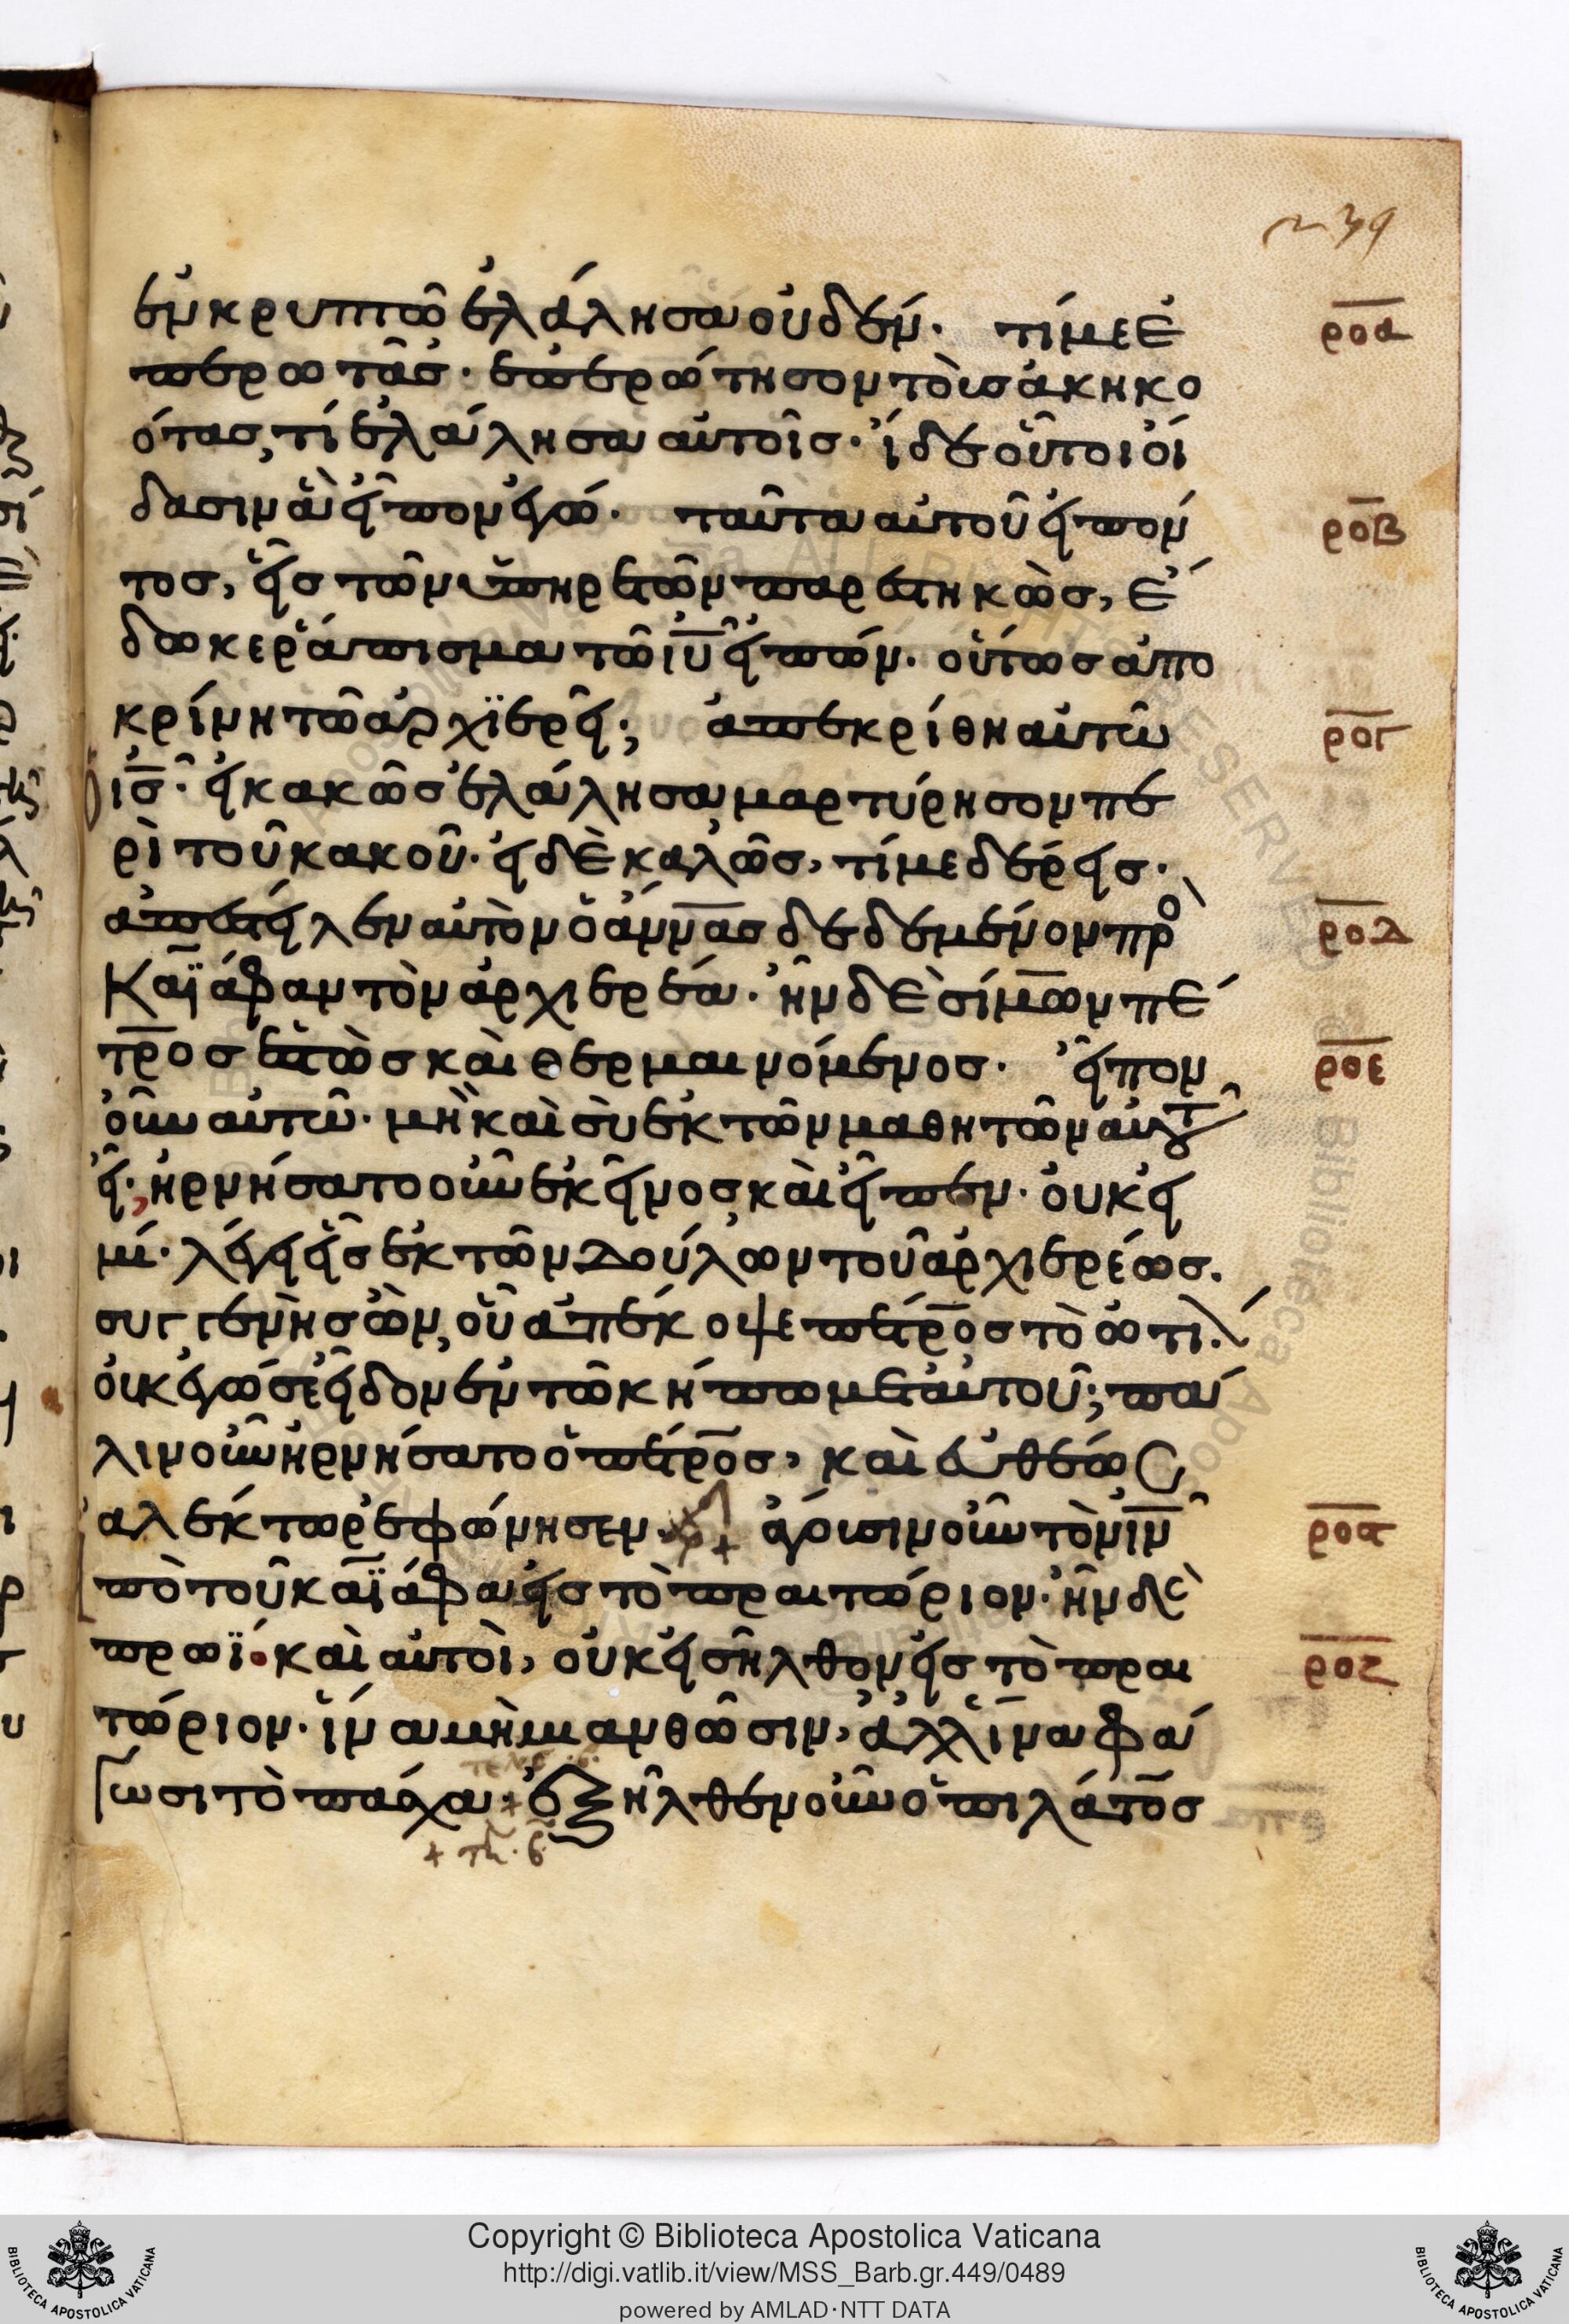 239
ἐν κρυπτῶ ἐλάλησα οὐδέν. τί με ἐ
ροα
περωτᾶς. ἐπερώτησον τοὺς ἀκηκο
ότας, τί ἐλάλησα αὐτοῖς. ἴδε οὗτοι οἴ
δασιν ἃ εἶπον ἐγώ. ταῦτα αὐτοῦ εἰπόν
ροβ
τος, εἷς τῶν ὑπηρετῶν παρεστηκὼς, ἔ
δωκε ῥάπισμα τῶ ιυ εἰπών. οὕτως ἀπο
κρίνη τῶ ἀρχϊερεῖ; ἀπεκρίθη αὐτῶ
ρογ
ις. εἰ κακῶς ἐλάλησα, μαρτύρησον πε
ρὶ τοῦ κακοῦ. εἰ δὲ καλῶς, τί με δέρεις.
ἀπέστειλεν αὐτὸν ὁ ἄννας δεδεμένον προ
ροδ
Καϊάφαν τὸν ἀρχιερέα. ἦν δὲ σίμων πέ
τρος ἑστὼς καὶ θερμαινόμενος. εἶπον
ροε
οὖν αὐτῶ. μὴ καὶ σὺ ἐκ τῶν μαθητῶν αὐτοῦ
εἶ; ἠρνήσατο οὖν ἐκεῖνος, καὶ εἶπεν. οὐκ εἰ
μί. λέγει εἷς ἐκ τῶν δούλων τοῦ ἀρχιερέως.
συγγενὴς ὢν, οὗ ἀπέκοψε πέτρος τὸ ὠτί.
οὐκ ἐγώ σε εἶδον ἐν τῶ κήπω μετ' αὐτοῦ; πά
λιν οὖν ἠρνήσατο ὁ πέτρος, καὶ εὐθέως
ἀλέκτωρ ἐφώνησεν. ἄγουσιν οὖν τὸν ιν
ρος
πὸ τοῦ καϊάφα εἰς τὸ πραιτώριον. ἦν δὲ
πρωΐ. καὶ αὐτοὶ, οὐκ εἰσῆλθον εἰς τὸ πραι
ροζ
τώριον. ἵνα μὴ μιανθῶσιν, ἀλλ' ἵνα φά
γωσι τὸ πάσχα. ἐξῆλθεν οὖν ὁ πιλάτος
Copyright © Biblioteca Apostolica Vaticana
http://digi.vatlib.it/view/MSS_Barb.gr.449/0489
powered by AMLAD·NTT DATA
BIBLIOTECA APOSTOLICA VATICANA
BIBLIOTECA APOSTOLICA VATICANA